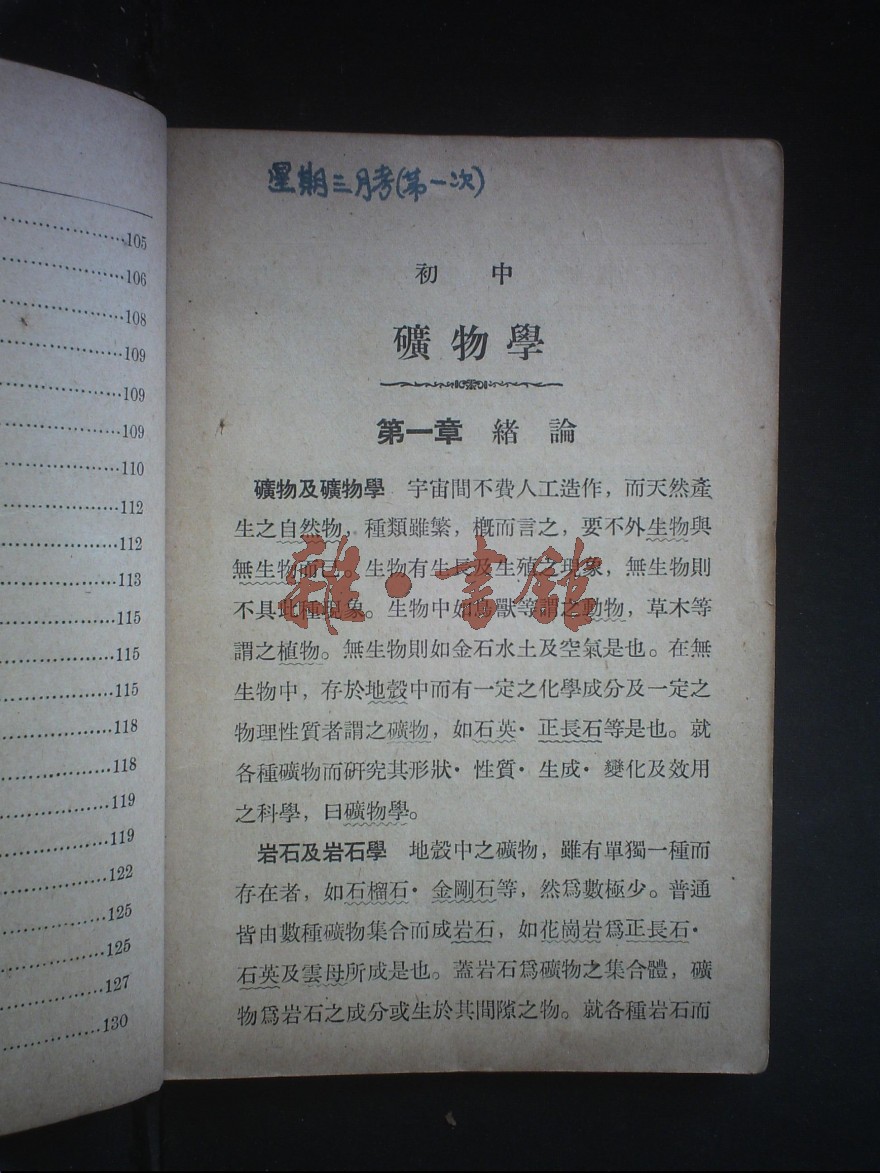 105
106
108
109
109
109
110
112
112
113
115
115
115
118
118
119
119
122
125
125
127
130
星期三月考(第一次)
初 中
礦物學
第一章 緒 論
礦物及礦物學 宇宙間不費人工造作，而天然產
生之自然物，種類雖繁，槪而言之，要不外生物與
無生物而已。生物有生長及生殖之現象，無生物則
不具此種現象。生物中如鳥獸等謂之動物，草木等
謂之植物。無生物則如金石水土及空氣是也。在無
生物中，存於地殼中而有一定之化學成分及一定之
物理性質者謂之礦物，如石英·正長石等是也。就
各種礦物而硏究其形狀·性質·生成·變化及效用
之科學，曰礦物學。
岩石及岩石學 地殼中之礦物，雖有單獨一種而
存在者，如石榴石·金剛石等，然爲數極少。普通
皆由數種礦物集合而成岩石，如花崗岩爲正長石·
石英及雲母所成是也。蓋岩石爲礦物之集合體，礦
物爲岩石之成分或生於其間隙之物。就各種岩石而
雜·書館